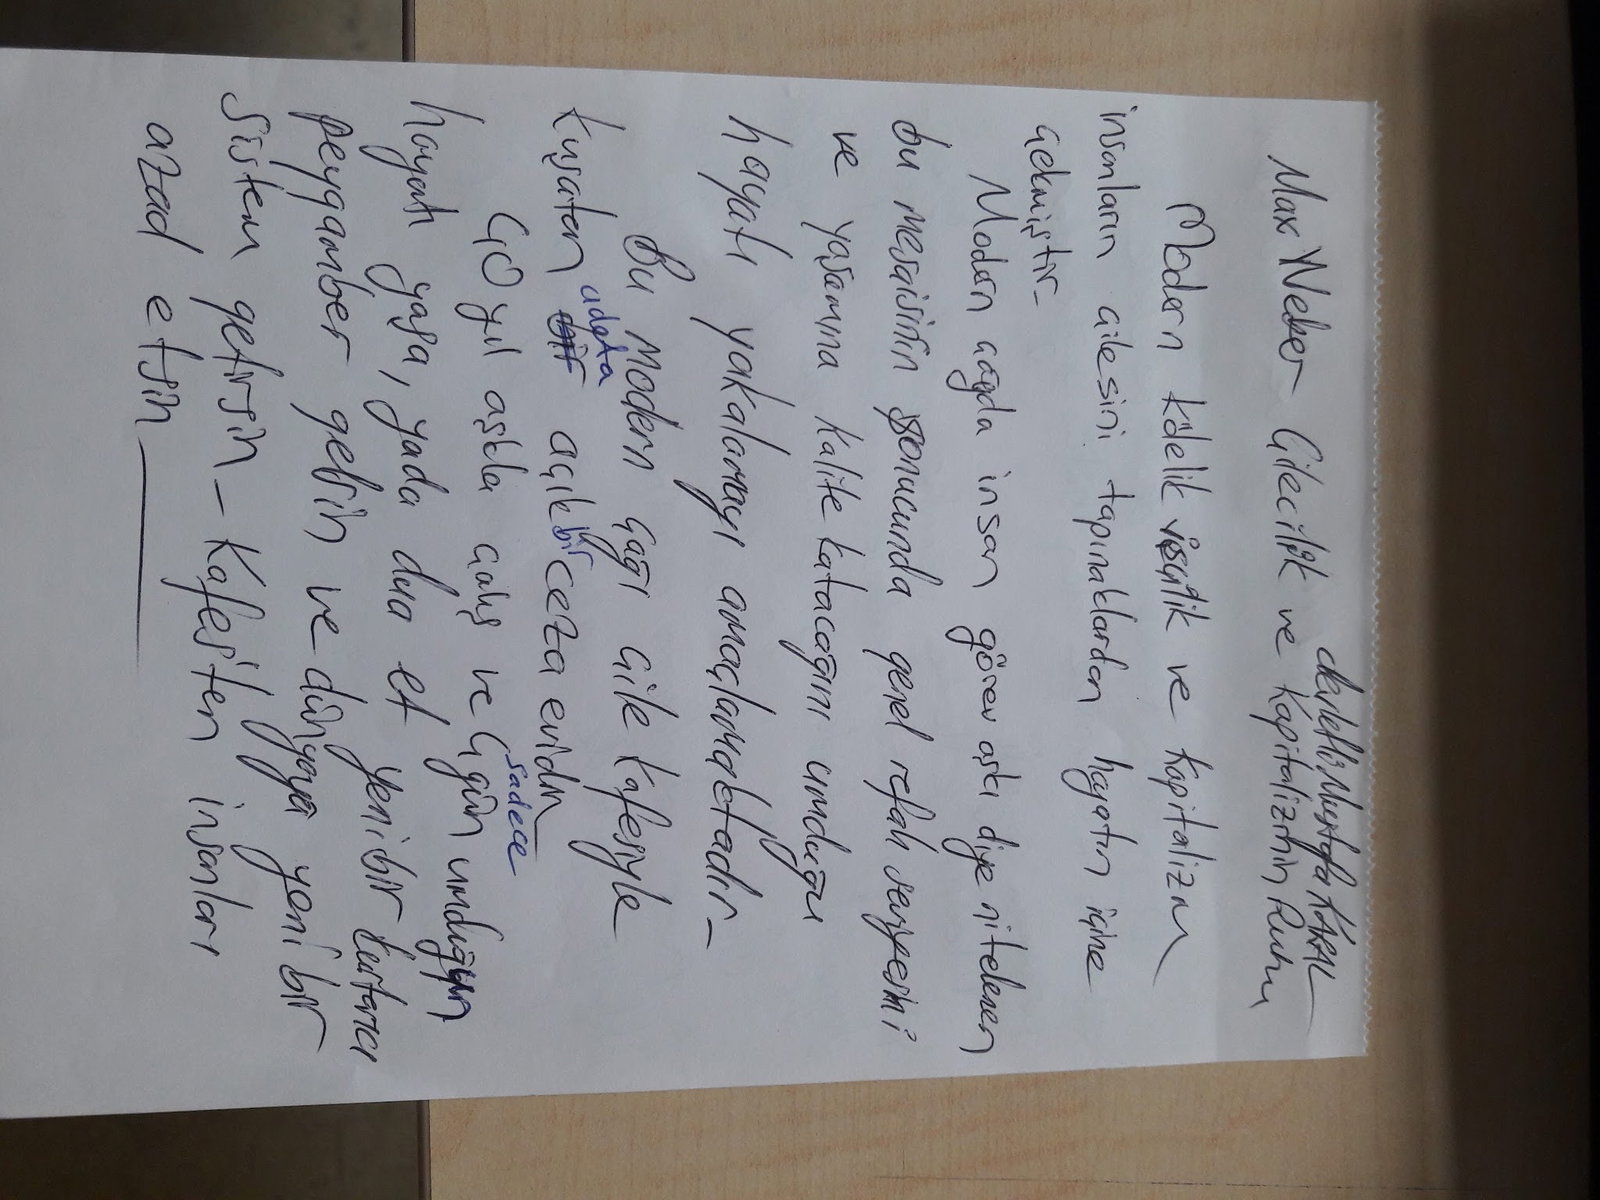 Mustafa KARAL
Max Weber Çilecilik ve Kapitalizmin Ruhu
Modern kölelik işçilik ve Kapitalizm
insanların ailesini tapınaklardan hayatın içine
çekmiştir-
Modern çağda insan görev aşkı diye nitelenen
bu mesaisinin sonucunda genel refah seviyesini
ve yaşamına kalite katacağını umduğu
hayatı yakalamayı amaçlamaktadır-
Bu modern çağı çile kafesiyle
kuşatan adeta açık bir ceza evidir
40 yıl aşkla çalış ve sadece 4 gün umduğun
hayatı yaşa, yada dua et yeni bir kurtarıcı
peygamber gelsin ve dünyaya yeni bir
sistem getirsin - Kafesten insanları
azad etsin